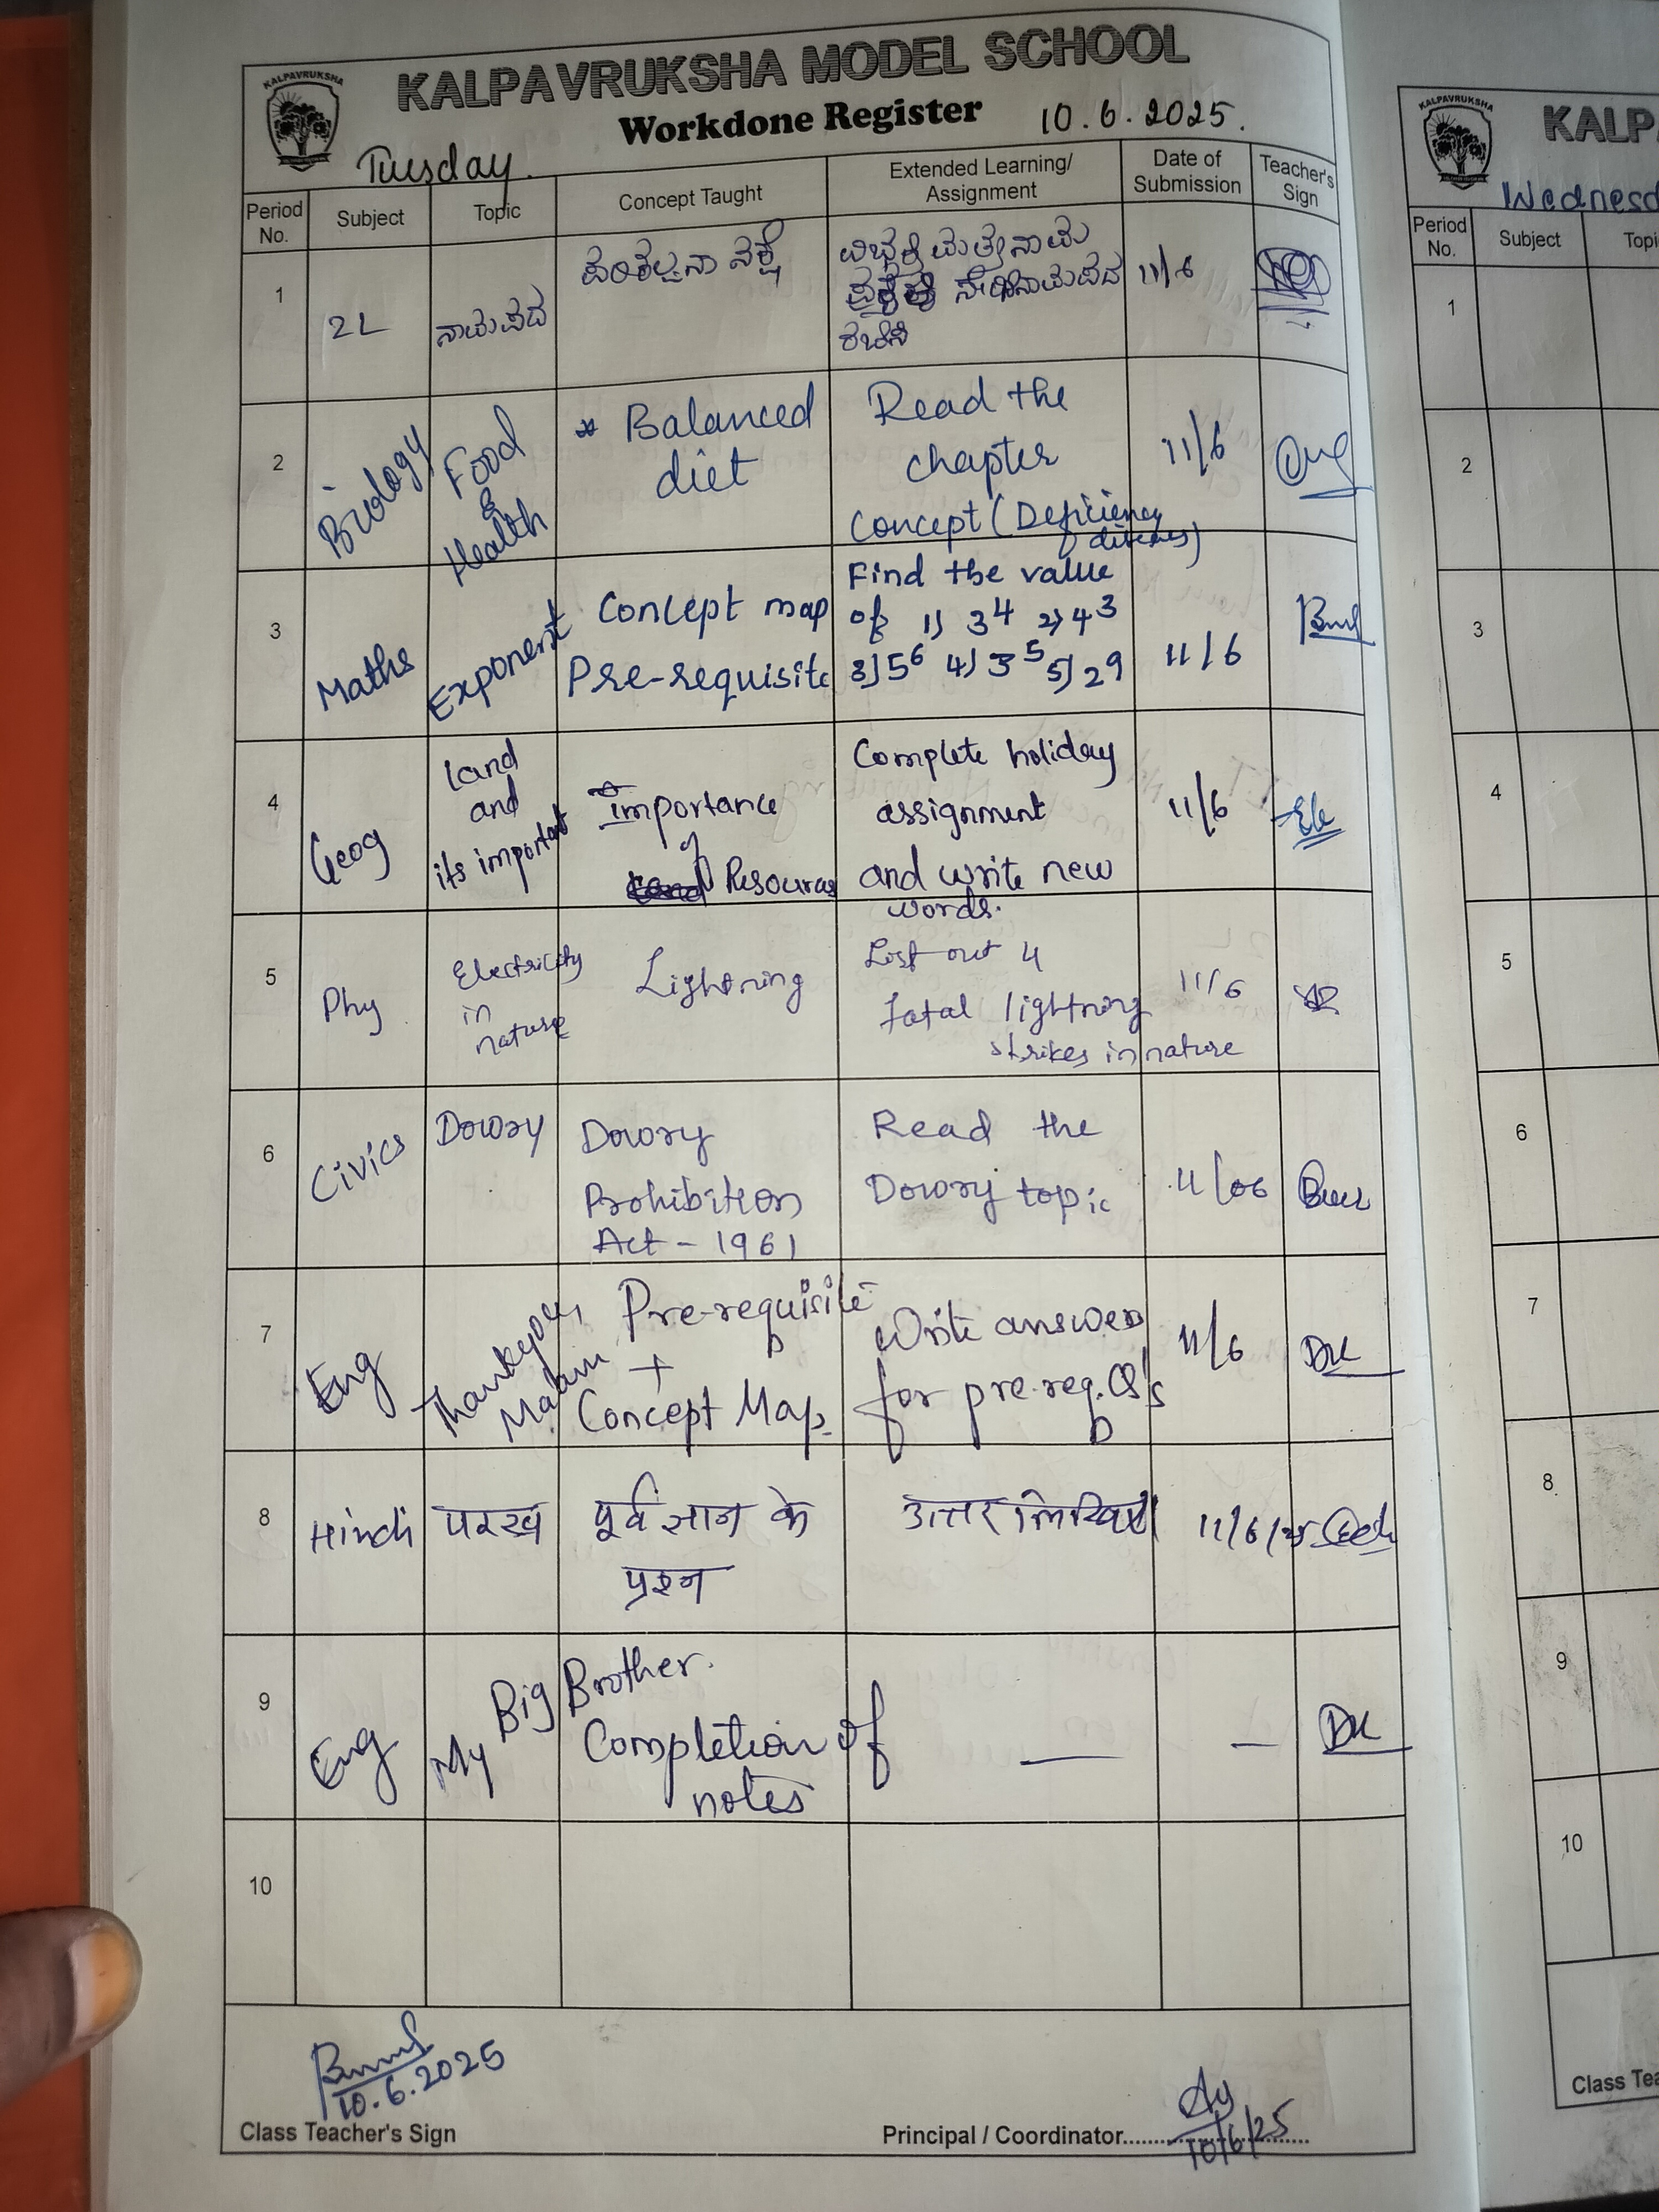 KALPAVRUKSHA
KALPAVRUKSHA MODEL SCHOOL
Workdone Register 10.6.2025.
Tuesday.
Period No. Subject Topic Concept Taught Extended Learning/ Assignment Date of Submission Teacher's Sign
1 2L ನಾಮಪದ
11/6
2 Biology Food & Health
* Balanced diet
Read the chapter
Concept (Deficiency diseases)
11/6
3 Maths Exponent
Concept map
Pre-requisite
Find the value
of 1) 3⁴ 2) 4³
3) 5⁶ 4) 3⁵ 5) 2⁹
11/6
4 Geog land and its important
Importance of Resources
Complete holiday
assignment
and write new
words.
11/6
5 Phy Electricity in nature
Lightning
List out 4
fatal lightning
strikes in nature
11/6
6 Civics Dowry
Dowry
Prohibition
Act - 1961
Read the
Dowry topic
11/06
7 Eng Thankyou Madam
Pre-requisite
+
Concept Map
Write answers
for pre-req. Q's
11/6
8 Hindi परख
पूर्व ज्ञान के
प्रश्न
उत्तर लिखिए
11/6/25
9 Eng My Big Brother.
Completion of
notes
— —
10
10.6.2025
Class Teacher's Sign
Principal / Coordinator
10/6/25
KALPAVRUKSHA
KALP
Wednesd
Period No. Subject Topi
1
2
3
4
5
6
7
8
9
10
Class Tea